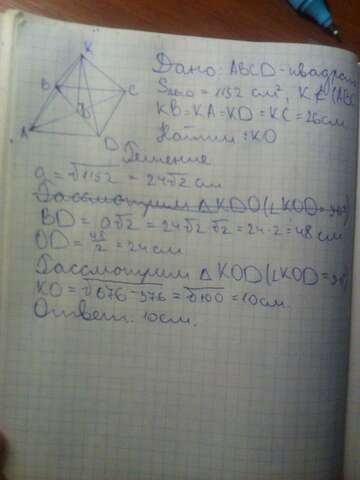 K
B
C
O
A
D
Дано: ABCD - квадрат
S ABCD = 1152 см², K ∉ (ABC)
KB = KA = KD = KC = 26см
Найти: KO
Решение
a = √1152 = 24√2 см
Рассмотрим △KDO (∠KOD = 90°)
BD = a√2 = 24√2 · √2 = 24·2 = 48 см
OD = 48/2 = 24 см
Рассмотрим △KOD (∠KOD = 90°)
KO = √676-576 = √100 = 10см.
Ответ: 10см.